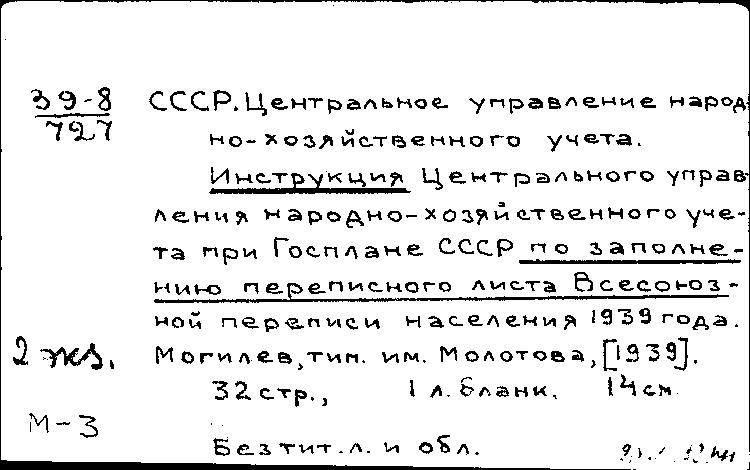 39-8
727
СССР. Центральное управление народ
но-хозяйственного учета.
Инструкция Центрального управ
ления народно-хозяйственного уче-
та при Госплане СССР по заполне-
нию переписного листа Всесоюз-
ной переписи населения 1939 года.
2 экз. Могилев, тип. им. Молотова, [1939].
32 стр., 1 л. бланк. 14 см
М-3
Без тит. л. и обл.